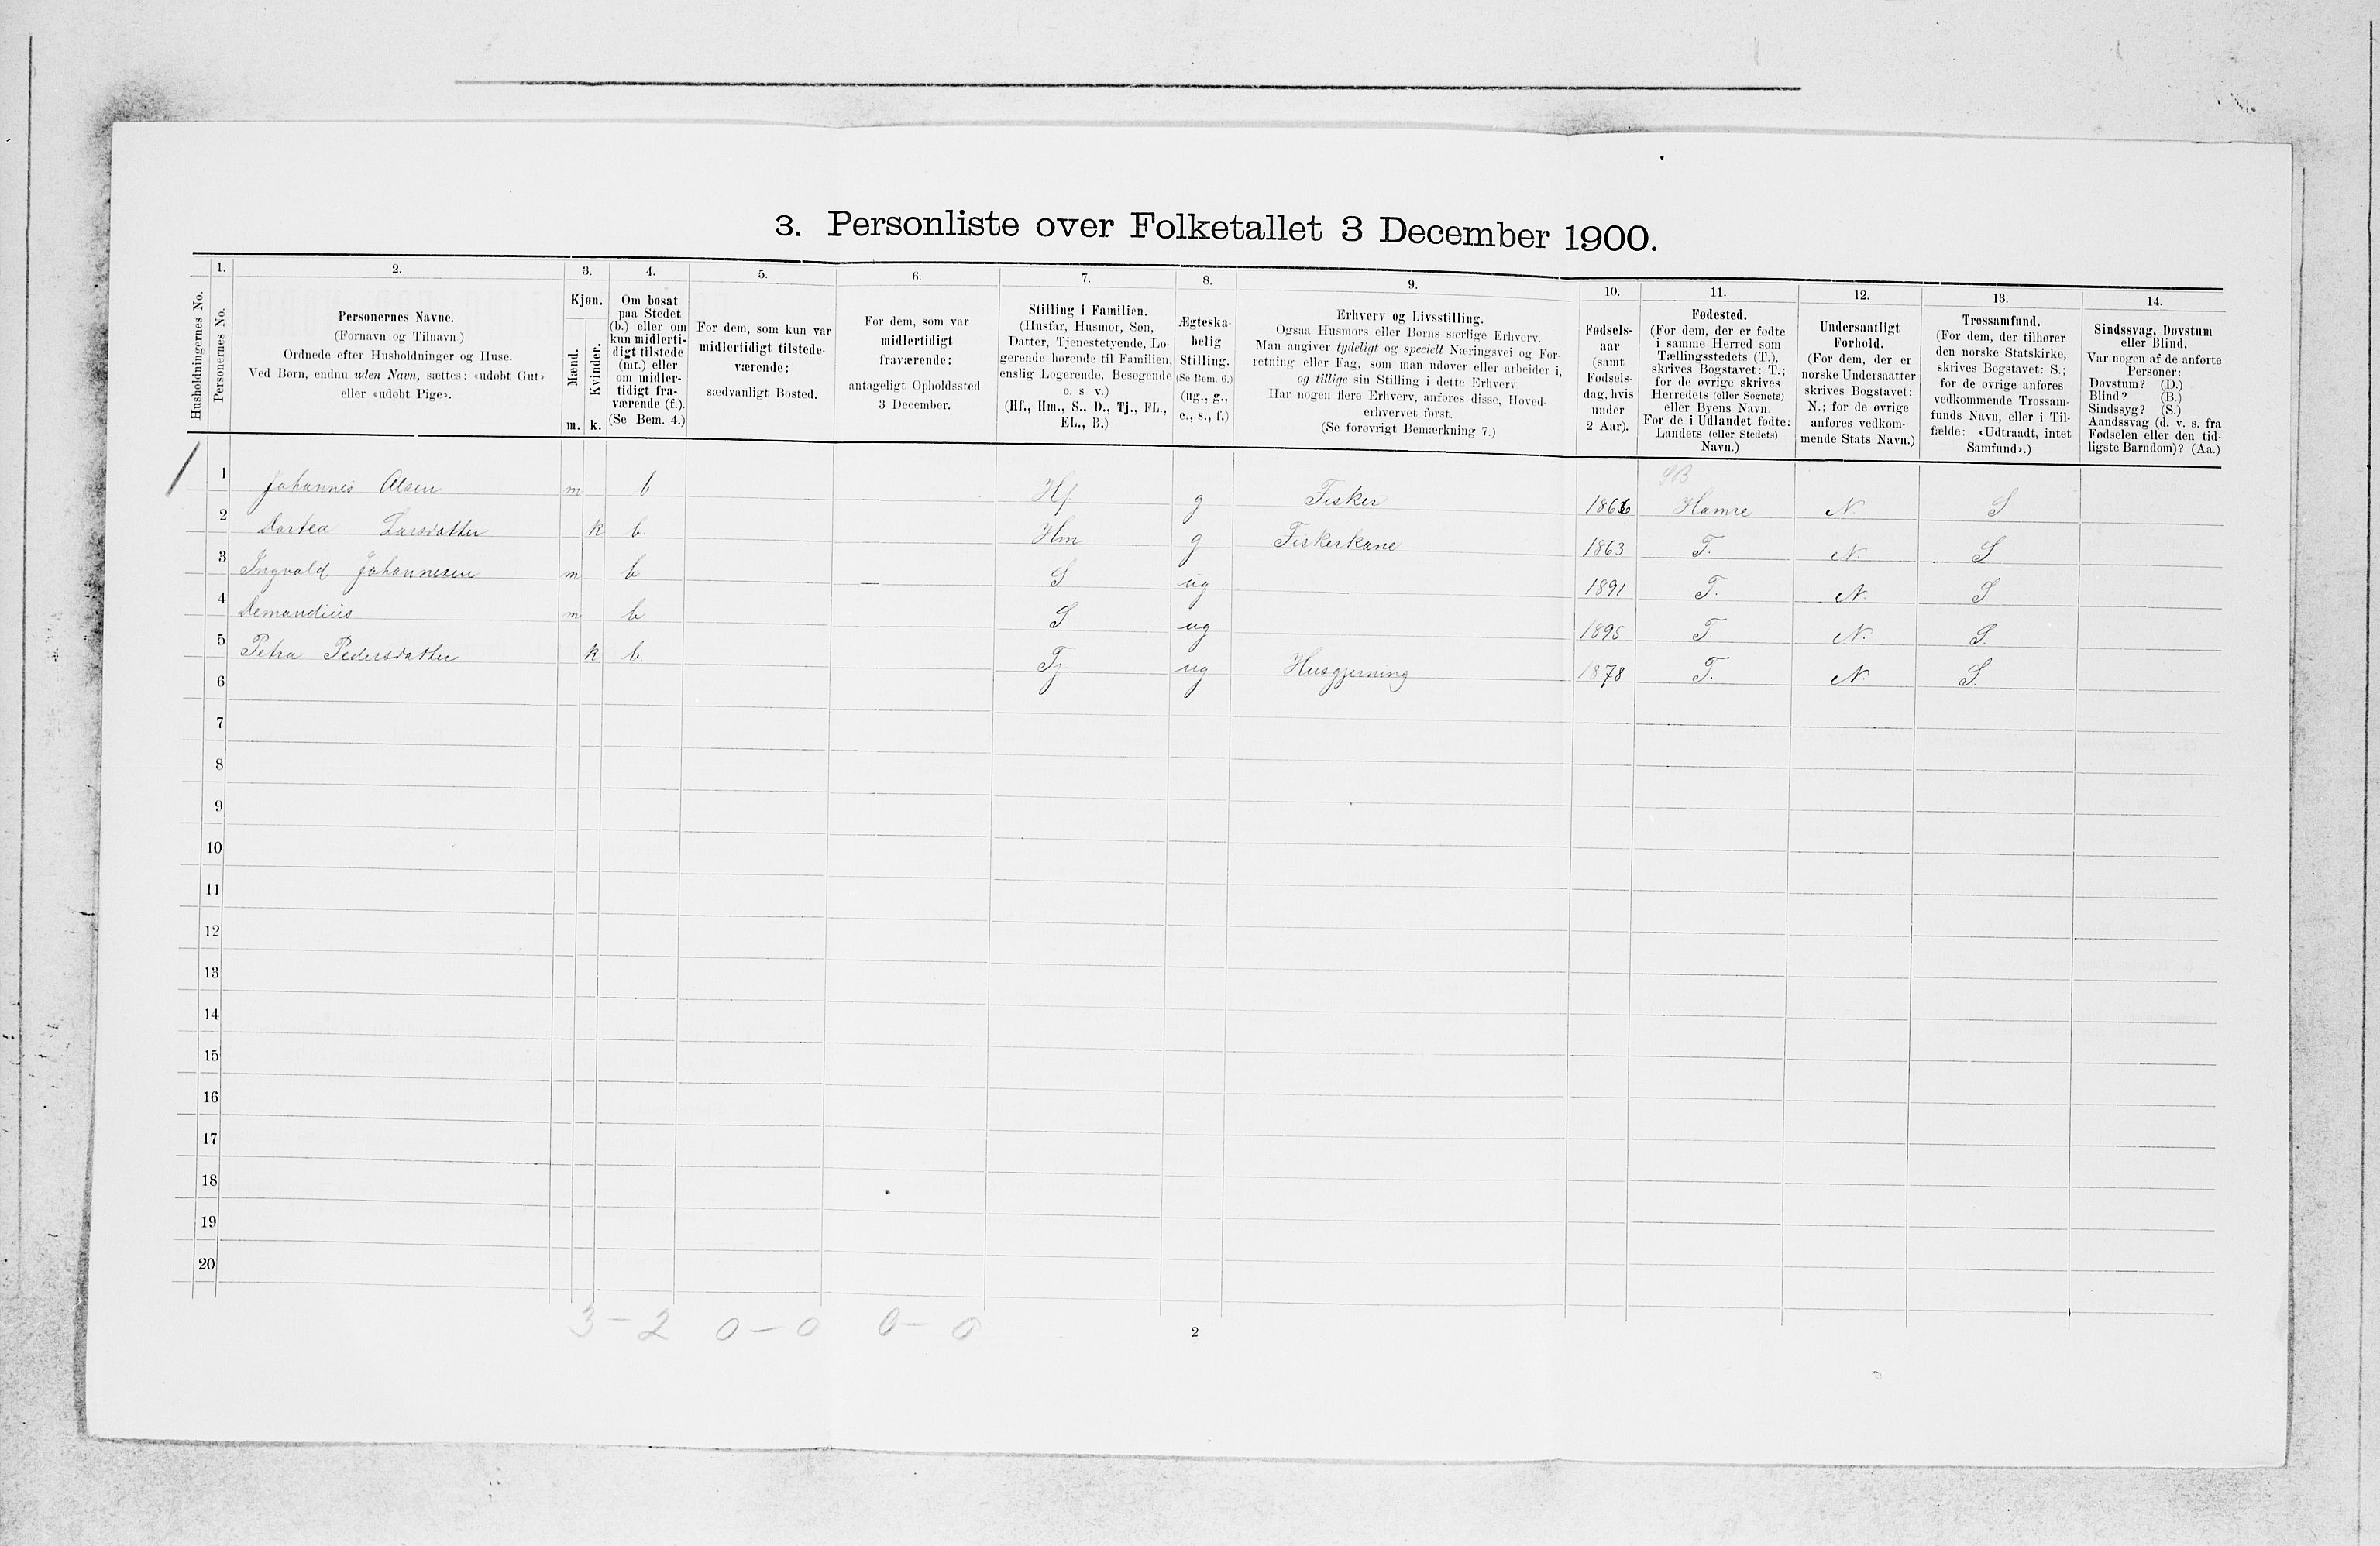 3. Personliste over Folketallet 3 December 1900.
1. 2. 3. 4. 5. 6. 7. 8. 9. 10. 11. 12. 13. 14.
Husholdningernes No.
Personernes No.
Personernes Navne.
(Fornavn og Tilnavn)
Ordnede efter Husholdninger og Huse.
Ved Børn, endnu uden Navn, sættes: «udøbt Gut»
eller «udøbt Pige».
Kjøn.
Mænd.
Kvinder.
m. k.
Om bosat
paa Stedet
(b.) eller om
kun midlerti-
digt tilstede
(mt.) eller
om midler-
tidigt fra-
værende (f.).
(Se Bem. 4.)
For dem, som kun var
midlertidigt tilstede-
værende:
sædvanligt Bosted.
For dem, som var
midlertidigt
fraværende:
antageligt Opholdssted
3 December.
Stilling i Familien.
(Husfar, Husmor, Søn,
Datter, Tjenestetyende, Lo-
gerende hørende til Familien,
enslig Logerende, Besøgende
o. s v.)
(Hf., Hm., S., D., Tj., FL.,
EL., B.)
Ægteska-
belig
Stilling.
(Se Bem. 6.)
(ug., g.,
e., s., f.)
Erhverv og Livsstilling.
Ogsaa Husmors eller Børns særlige Erhverv.
Man angiver tydeligt og specielt Næringsvei og For-
retning eller Fag, som man udøver eller arbeider i,
og tillige sin Stilling i dette Erhverv
Har nogen flere Erhverv, anføres disse, Hoved-
erhvervet først.
(Se forøvrigt Bemærkning 7.)
Fødsels-
aar
(samt
Fødsels-
dag, hvis
under
2 Aar).
Fødested.
(For dem, der er fødte
i samme Herred som
Tællingsstedets (T.),
skrives Bogstavet: T.;
for de øvrige skrives
Herredets (eller Sognets)
eller Byens Navn.
For de i Udlandet fødte:
Landets (eller Stedets)
Navn.)
Undersaatligt
Forhold.
(For dem, der er
norske Undersaatter
skrives Bogstavet:
N.; for de øvrige
anføres vedkom-
mende Stats Navn.)
Trossamfund.
(For dem, der tilhører
den norske Statskirke,
skrives Bogstavet: S.;
for de øvrige anføres
vedkommende Trossam-
funds Navn, eller i Til-
fælde: «Udtraadt, intet
Samfund».)
Sindssvag, Døvstum
eller Blind.
Var nogen af de anførte
Personer:
Døvstum? (D.)
Blind? (B.)
Sindssyg? (S.)
Aandssvag (d. v. s. fra
Fødselen eller den tid-
ligste Barndom)? (Aa.)
SB
1 Johannes Olsen m b Hf g Fisker 1866 Hamre N S
2 Dortea Larsdatter k b. Hm g Fiskerkone 1863 T. N. S
3 Ingvald Johannesen m b S ug 1891 T. N. S
4 Demandius m b S ug 1895 T. N. S.
5 Petra Pedersdatter k b. Tj. ug Husgjerning 1878 T. N. S.
6
7
8
9
10
11
12
13
14
15
16
17
18
19
20
3 - 2 0 - 0 0 - 0
2